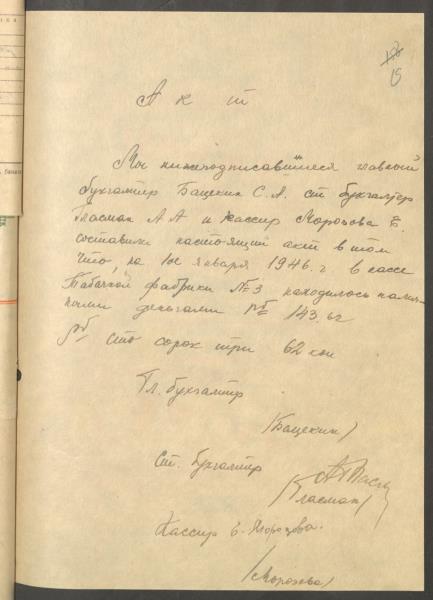 15
Акт
Мы нижеподписавшиеся главный
бухгалтер Бацекин С.А. ст бухгалтер
Гласман А А и кассир Морозова Е.
составили настоящий акт в том
что, на 1ое января 1946 г. в кассе
Табачной фабрики №3 находилось налич-
ными деньгами рб 143.62
рб сто сорок три 62 коп
Гл. бухгалтер
/Бацекин/
Ст. бухгалтер
/Гласман/
Кассир Е. Морозова.
/Морозова/